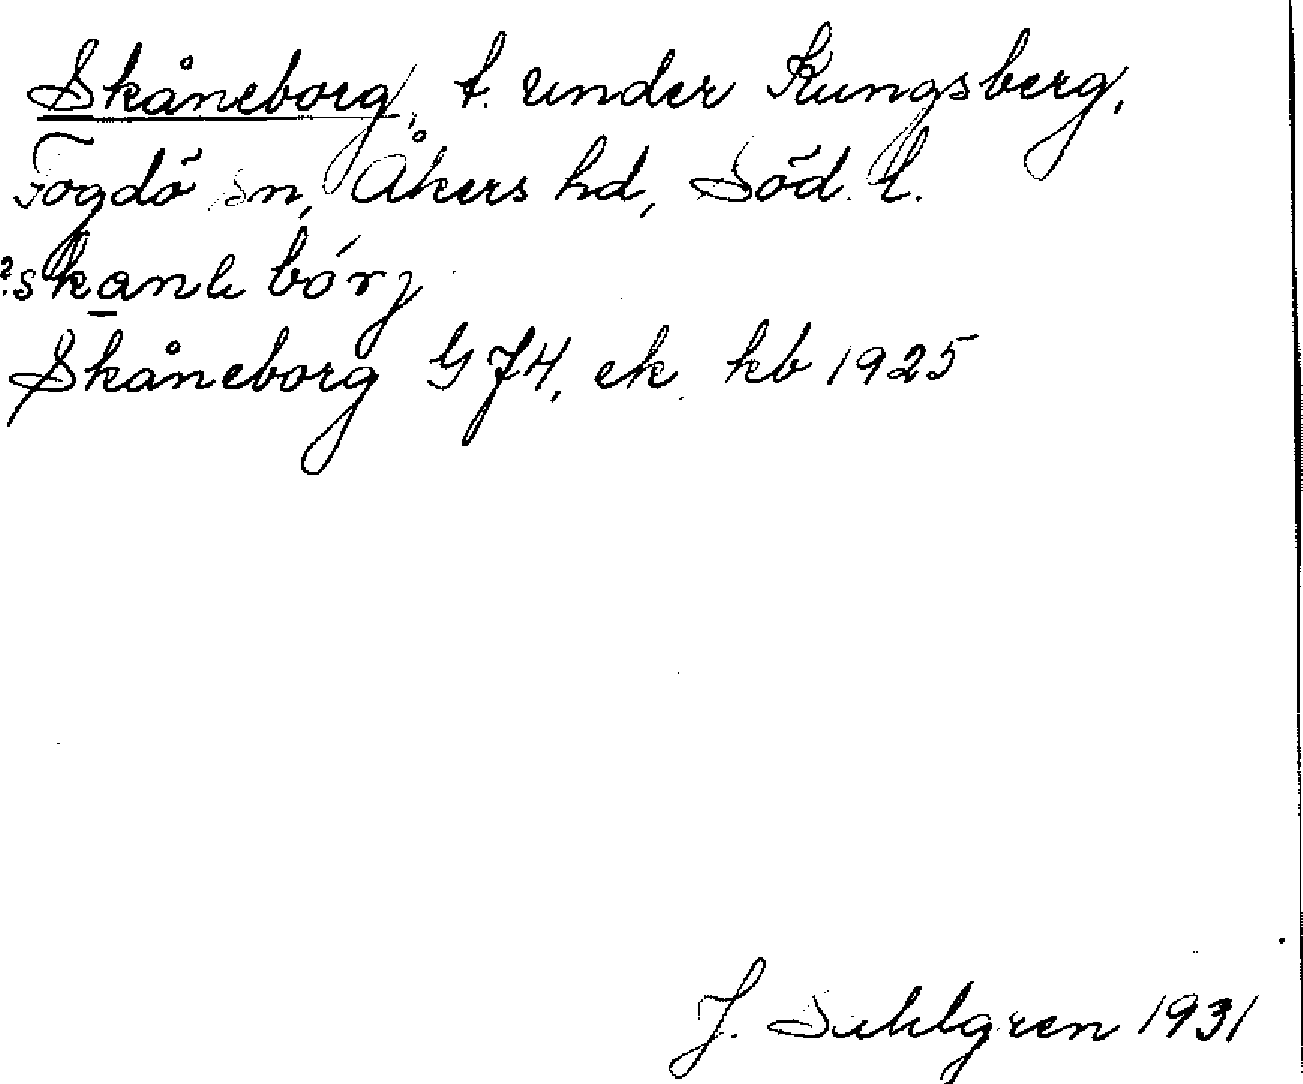 Skåneborg, t. under Kungsberg,
Fogdö sn, Åkers hd, Söd. l.
?skanebórj
Skåneborg G 74, ek. kb 1925
J. Sahlgren 1931